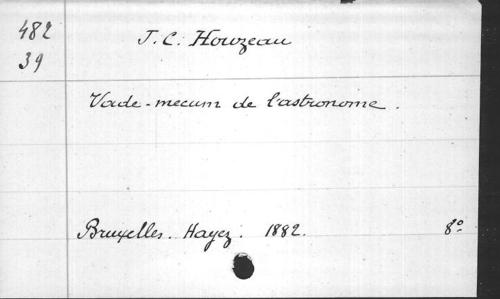 482 J. C. Houzeau
39
Vade-mecum de l'astronome.
Bruxelles. Hayez. 1882. 8º